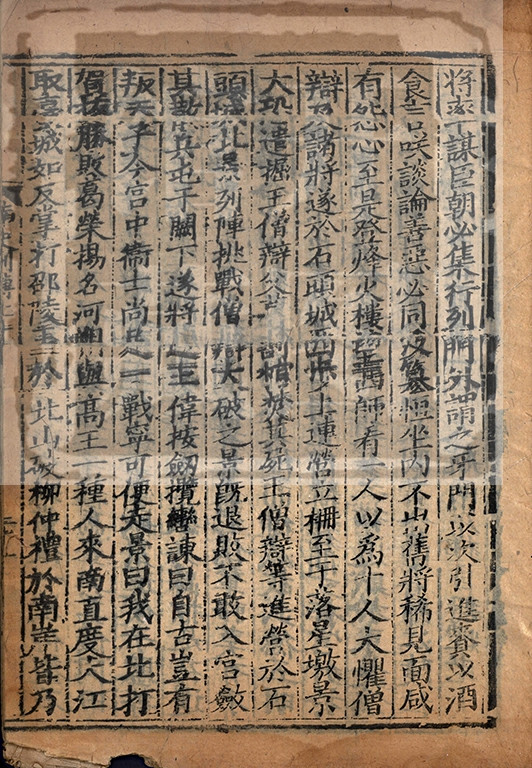 將率謀臣朝必集行列門外謂之牙門以次引進賚以酒
食言咲談論善惡必同及篡恒坐內不出舊將稀見面咸
有怨心至是登烽火樓望西師看一人以爲十人大懼僧
辯及諸將遂於石頭城西步上連營立柵至于落星墩景
大恐遣掘王僧辯父墓剖棺焚其屍王僧辯等進營於石
頭城北景列陣挑戰僧辯大破之景旣退敗不敢入宮斂
其散兵屯于闕下遂將逃王偉按劒攬轡諫曰自古豈有
叛天子今宮中衛士尚足一戰寧可便走景曰我在北打
賀拔勝敗葛榮揚名河朔與高王一種人來南直度大江
取臺城如反掌打邵陵王於北山破柳仲禮於南岸皆乃